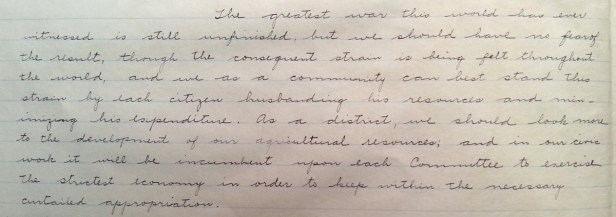 The greatest war this world has ever
witnessed is still unfinished, but we should have no fear of
the result, though the consequent strain is being felt throughout
the world, and we as a community can best stand this
strain by each citizen husbanding his resources and min-
imizing his expenditure. As a district, we should look more
to the development of our agricultural resources; and in our civic
work it will be incumbent upon each Committee to exercise
the strictest economy in order to keep within the necessary
curtailed appropriation.